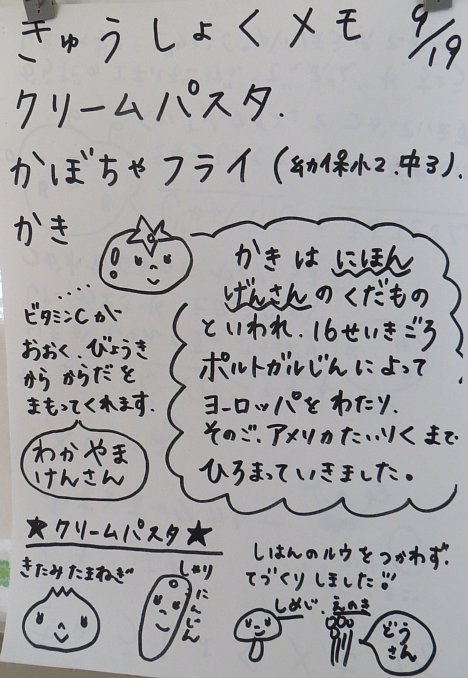 きゅうしょくメモ 9/19
クリームパスタ.
かぼちゃフライ(幼保小2、中3).
かき
かきは にほん
げんさんのくだもの
といわれ、16せいきごろ
ポルトガルじんによって
ヨーロッパをわたり、
そのご、アメリカたいりくまで
ひろまっていきました。
ビタミンCが
おおく、びょうき
から からだを
まもってくれます.
わかやま
けんさん
★クリームパスタ★
きたみたまねぎ
しゃり
にんじん
しはんのルウをつかわず、
てづくりしました!!
しめじ、えのき
どう
さん